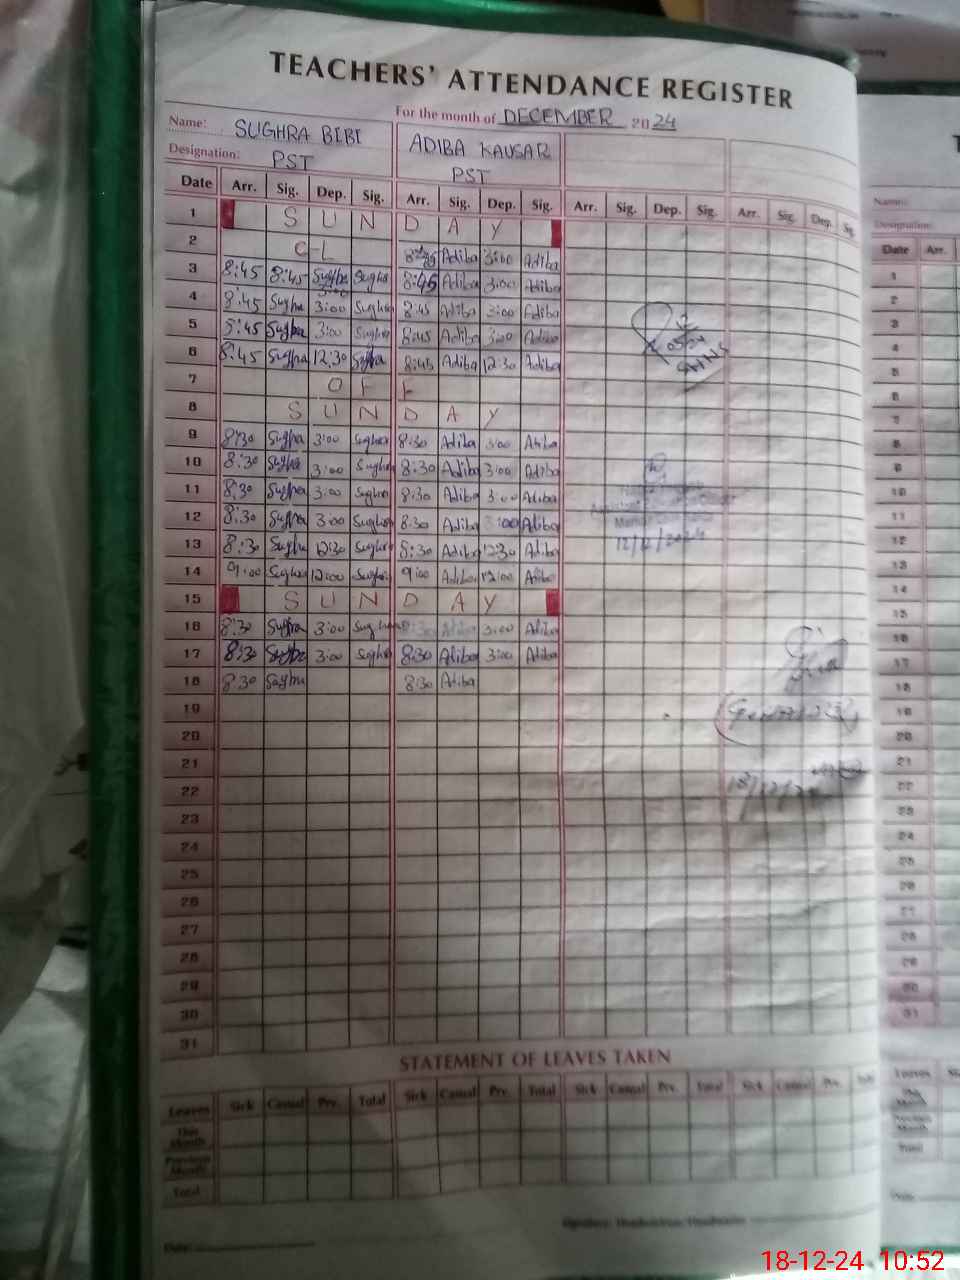 TEACHERS' ATTENDANCE REGISTER
For the month of DECEMBER 2024
Name: SUGHRA BIBI ADIBA KAUSAR
Designation: PST PST
Date Arr. Sig. Dep. Sig. Arr. Sig. Dep. Sig. Arr. Sig. Dep. Sig. Arr. Sig. Dep. Sig.
1 S U N D A Y
2 C-L Adiba 3:00 Adiba
3 8:45 8:45 Sughra Sughra 8:45 Adiba 3:00 Adiba
4 8:45 Sughra 3:00 Sughra 8:45 Adiba 3:00 Adiba
5 8:45 Sughra 3:00 Sughra 8:45 Adiba 3:00 Adiba
6 8:45 Sughra 12:30 Sughra 8:45 Adiba 12:30 Adiba
7 O F F
8 S U N D A Y
9 8:30 Sughra 3:00 Sughra 8:30 Adiba 3:00 Adiba
10 8:30 Sughra 3:00 Sughra 8:30 Adiba 3:00 Adiba
11 8:30 Sughra 3:00 Sughra 8:30 Adiba 3:00 Adiba
12 8:30 Sughra 3:00 Sughra 8:30 Adiba 3:00 Adiba
12/12/2024
13 8:30 Sughra 12:30 Sughra 8:30 Adiba 12:30 Adiba
14 9:00 Sughra 12:00 Sughra 9:00 Adiba 12:00 Adiba
15 S U N D A Y
16 8:30 Sughra 3:00 Sughra 8:30 Adiba 3:00 Adiba
17 8:30 Sughra 3:00 Sughra 8:30 Adiba 3:00 Adiba
18 8:30 Sughra 8:30 Adiba
19
20
21
22
23
24
25
26
27
28
29
30
31
STATEMENT OF LEAVES TAKEN
Leaves Sick Casual Prv. Total Sick Casual Prv. Total Sick Casual Prv. Total Sick Casual Prv.
This Month
Previous Month
Total
Date:
Name:
Designation:
Date Arr.
1
2
3
4
5
6
7
8
9
10
11
12
13
14
15
16
17
18
19
20
21
22
23
24
25
26
27
28
29
30
31
Leaves
Total
18-12-24 10:52